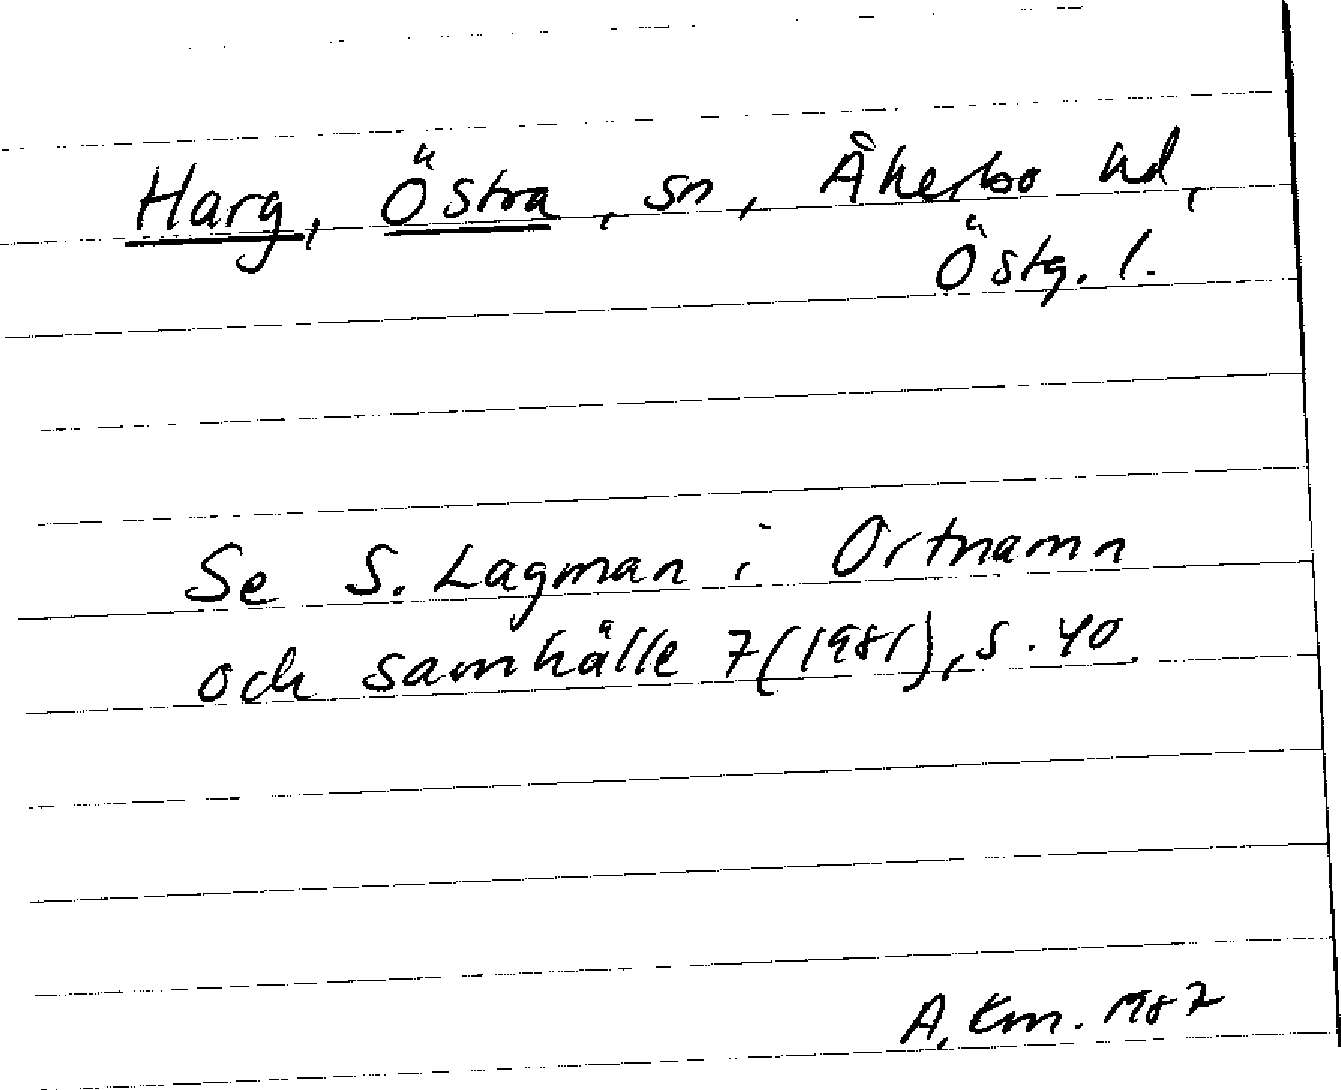 Harg, Östra, sn, Åkerbo hd,
Östg. l.
Se S. Lagman i Ortnamn
och samhälle 7 (1981), s. 40.
1987